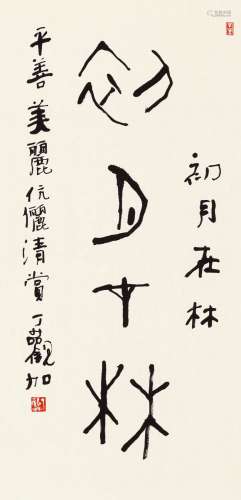 初月在林
初月在林
平善美麗伉儷清賞丁觀加